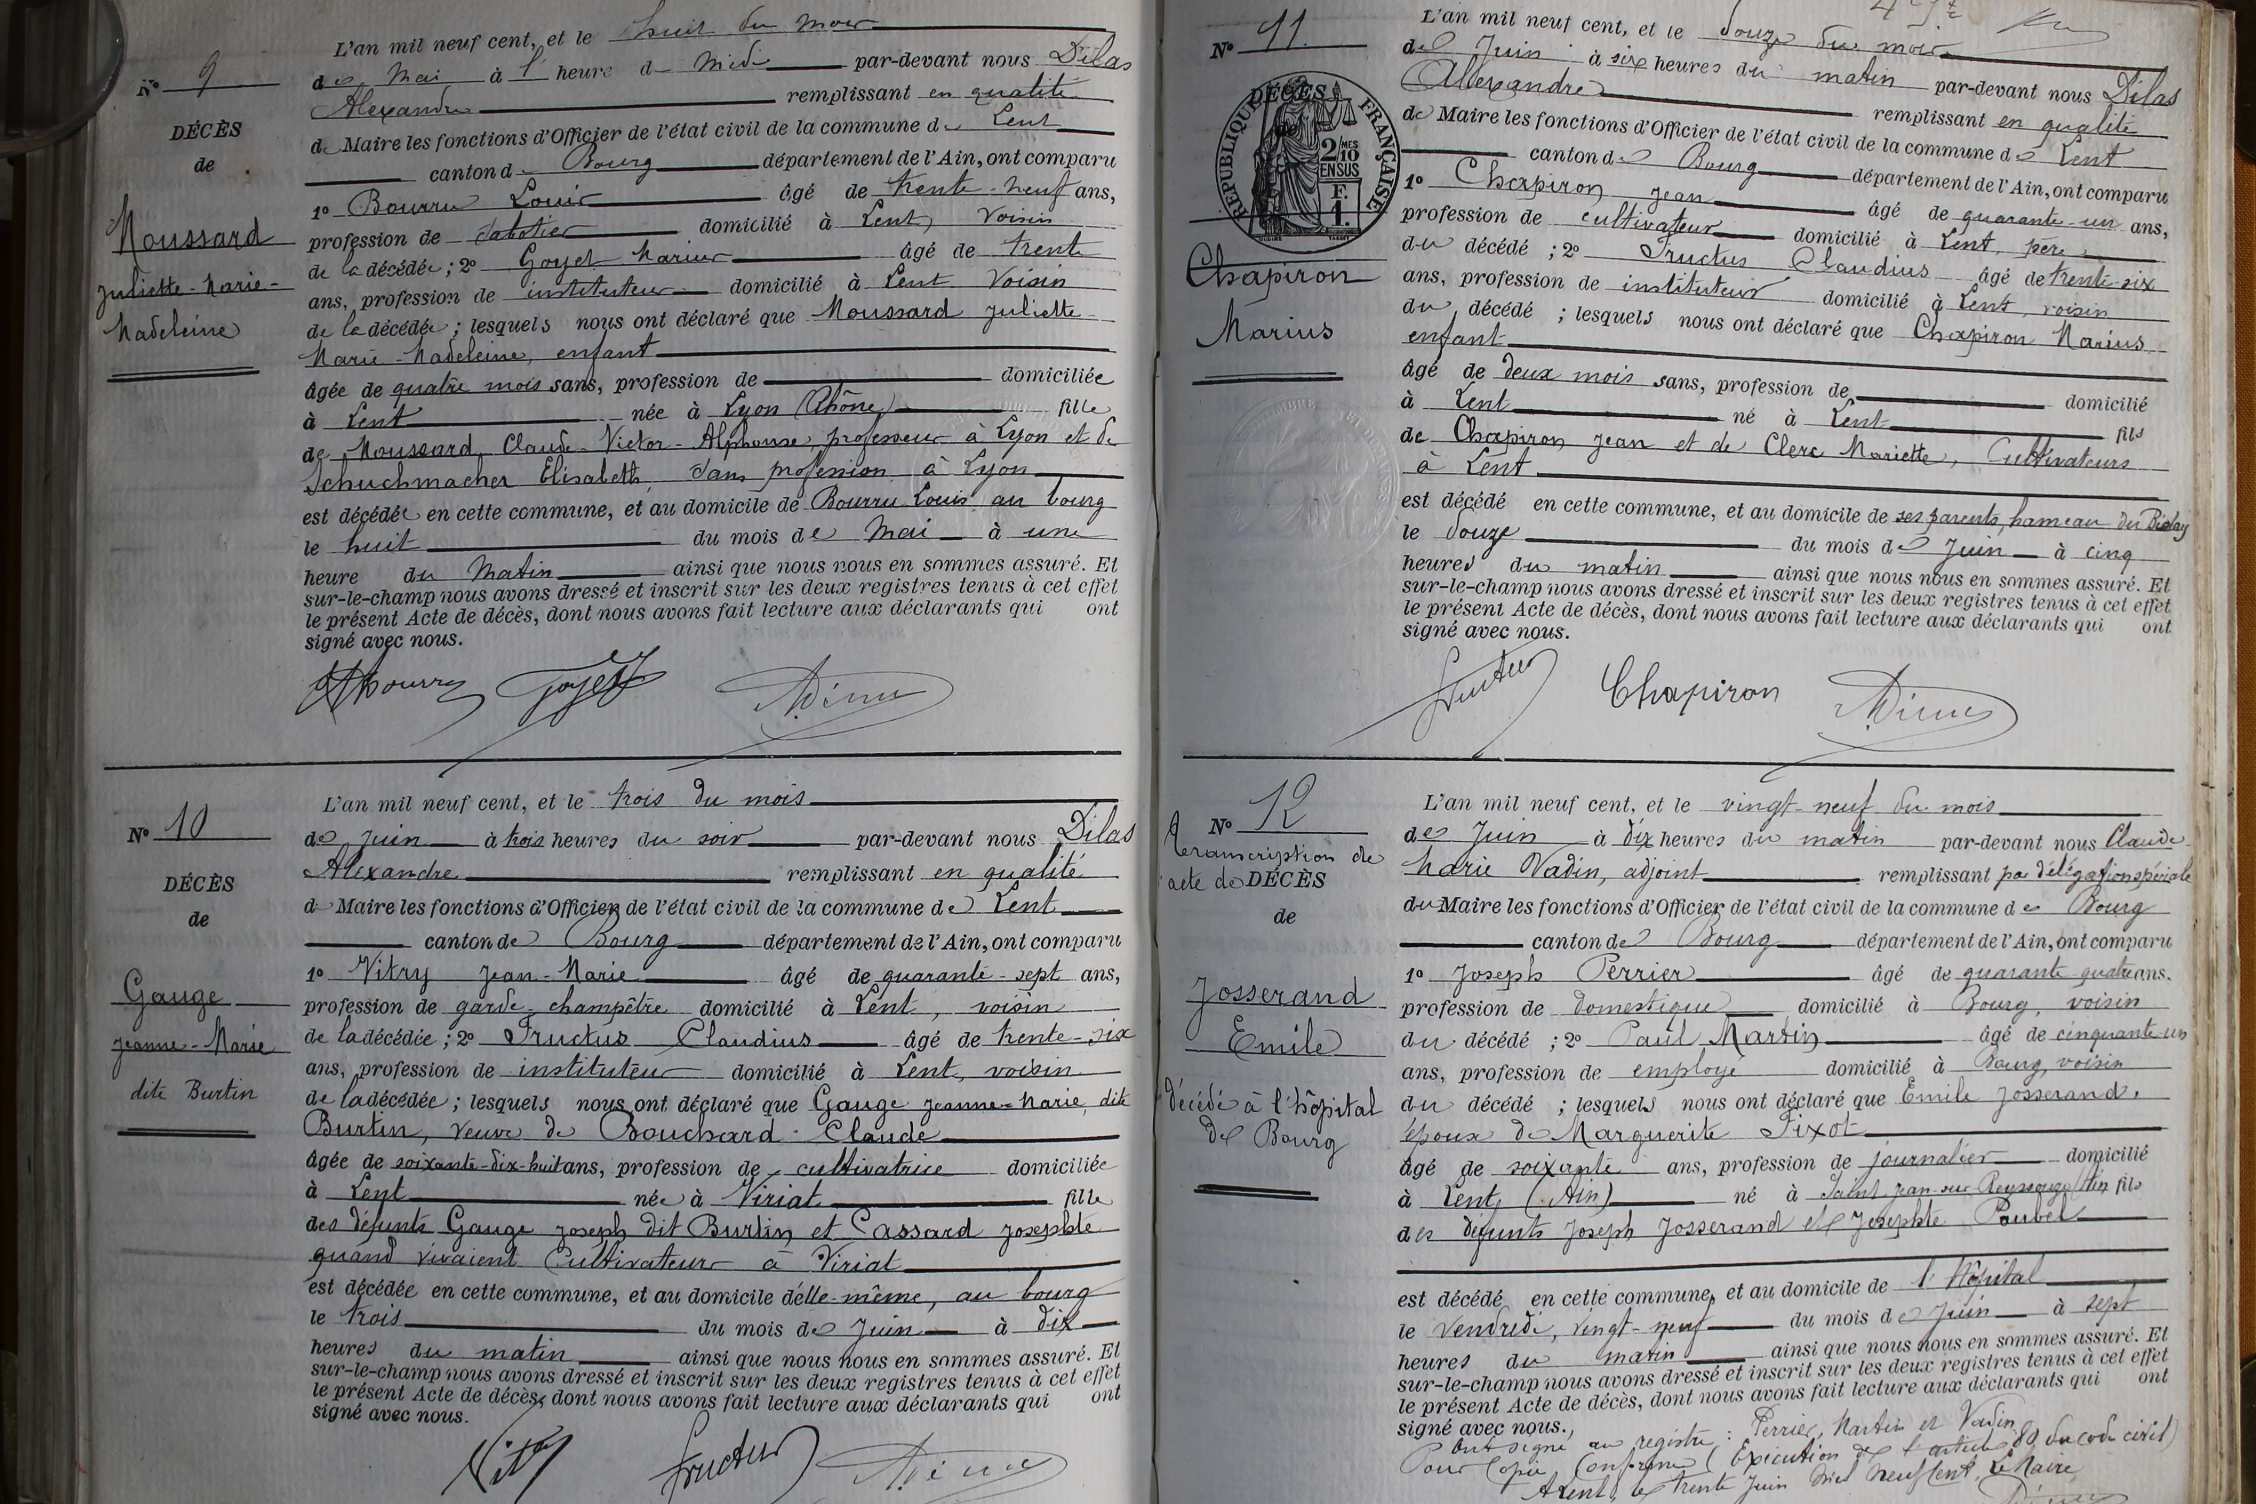 L'an mil neuf cent, et le huit du mois
N° 9
de Mai à l' heure de Midi par-devant nous Dilas
Alexandre remplissant en qualité
DÉCÈS
de Maire les fonctions d'Officier de l'état civil de la commune de Lent
de
canton de Bourg département de l'Ain, ont comparu
1° Bourru Louis âgé de trente-neuf ans,
Moussard
profession de sabotier domicilié à Lent, voisin
de la décédée; 2° Goyet Marius âgé de trente
Juliette-Marie-
ans, profession de instituteur domicilié à Lent voisin
Madeleine
de la décédée; lesquels nous ont déclaré que Moussard Juliette-
Marie-Madeleine, enfant
âgée de quatre mois sans, profession de domiciliée
à Lent née à Lyon (Rhône) fille
de Moussard Claude-Victor-Alphonse, professeur à Lyon et de
Schuchmacher Elisabeth, sans profession à Lyon
est décédée en cette commune, et au domicile de Bourru Louis au bourg
le huit du mois de Mai à une
heure du Matin ainsi que nous nous en sommes assuré. Et
sur-le-champ nous avons dressé et inscrit sur les deux registres tenus à cet effet
le présent Acte de décès, dont nous avons fait lecture aux déclarants qui ont
signé avec nous.
Bourru Goyet
L'an mil neuf cent, et le trois du mois
N° 10
de Juin à trois heures du soir par-devant nous Dilas
Alexandre remplissant en qualité
DÉCÈS
de Maire les fonctions d'Officier de l'état civil de la commune de Lent
de
canton de Bourg département de l'Ain, ont comparu
1° Vitry Jean-Marie âgé de quarante-sept ans,
Gauge
profession de garde-champêtre domicilié à Lent, voisin
Jeanne-Marie
de la décédée; 2° Fructus Claudius âgé de trente-six
ans, profession de instituteur domicilié à Lent, voisin
dite Burtin
de la décédée; lesquels nous ont déclaré que Gauge Jeanne-Marie, dite
Burtin, veuve de Bouchard Claude
âgée de soixante-dix-huit ans, profession de cultivatrice domiciliée
à Lent née à Viriat fille
des défunts Gauge Joseph dit Burtin et Cassard Josephte
quand vivaient Cultivateurs à Viriat
est décédée en cette commune, et au domicile d'elle-même, au bourg
le trois du mois de Juin à dix
heures du matin ainsi que nous nous en sommes assuré. Et
sur-le-champ nous avons dressé et inscrit sur les deux registres tenus à cet effet
le présent Acte de décès, dont nous avons fait lecture aux déclarants qui ont
signé avec nous.
Vitry Fructus
L'an mil neuf cent, et le douze du mois
N° 11
de Juin à six heures du matin par-devant nous Dilas
Alexandre remplissant en qualité
DÉCÈS
RÉPUBLIQUE FRANÇAISE
2/10 MES
EN SUS
F.
1.
de Maire les fonctions d'Officier de l'état civil de la commune de Lent
canton de Bourg département de l'Ain, ont comparu
1° Chapiron Jean âgé de quarante-un ans,
profession de cultivateur domicilié à Lent, père
Chapiron
du décédé; 2° Fructus Claudius âgé de trente-six
ans, profession de instituteur domicilié à Lent, voisin
Marius
du décédé; lesquels nous ont déclaré que Chapiron Marius
enfant
âgé de deux mois sans, profession de domicilié
à Lent né à Lent fils
de Chapiron Jean et de Clerc Mariette, Cultivateurs
à Lent
est décédé en cette commune, et au domicile de ses parents, hameau du
le douze du mois de Juin à cinq
heures du matin ainsi que nous nous en sommes assuré. Et
sur-le-champ nous avons dressé et inscrit sur les deux registres tenus à cet effet
le présent Acte de décès, dont nous avons fait lecture aux déclarants qui ont
signé avec nous.
Fructus Chapiron
L'an mil neuf cent, et le vingt-neuf du mois
N° 12
Transcription de
acte de DÉCÈS
de
de Juin à dix heures du matin par-devant nous Claude-
Marie Vadin, adjoint remplissant par délégation spéciale
du Maire les fonctions d'Officier de l'état civil de la commune de Bourg
canton de Bourg département de l'Ain, ont comparu
1° Joseph Perrier âgé de quarante-quatre ans.
Josserand
profession de domestique domicilié à Bourg, voisin
Emile
du décédé; 2° Paul Martin âgé de cinquante-un
ans, profession de employé domicilié à Bourg, voisin
décédé à l'hôpital
du décédé; lesquels nous ont déclaré que Emile Josserand,
de Bourg
époux de Marguerite Fixot
âgé de soixante ans, profession de journalier domicilié
à Lent, (Ain) né à Saint-Jean-sur-Reyssouze (Ain) fils
des défunts Joseph Josserand et Josephte Poubel
est décédé en cette commune, et au domicile de l'Hôpital
le Vendredi, vingt-neuf du mois de Juin à sept
heures du matin ainsi que nous nous en sommes assuré. Et
sur-le-champ nous avons dressé et inscrit sur les deux registres tenus à cet effet
le présent Acte de décès, dont nous avons fait lecture aux déclarants qui ont
signé avec nous.
Ont signé au registre: Perrier, Martin et Vadin
Pour Copie Conforme (Exécution de l'article 80 du code civil)
A Lent, le trente Juin mil neuf cent, Le Maire,